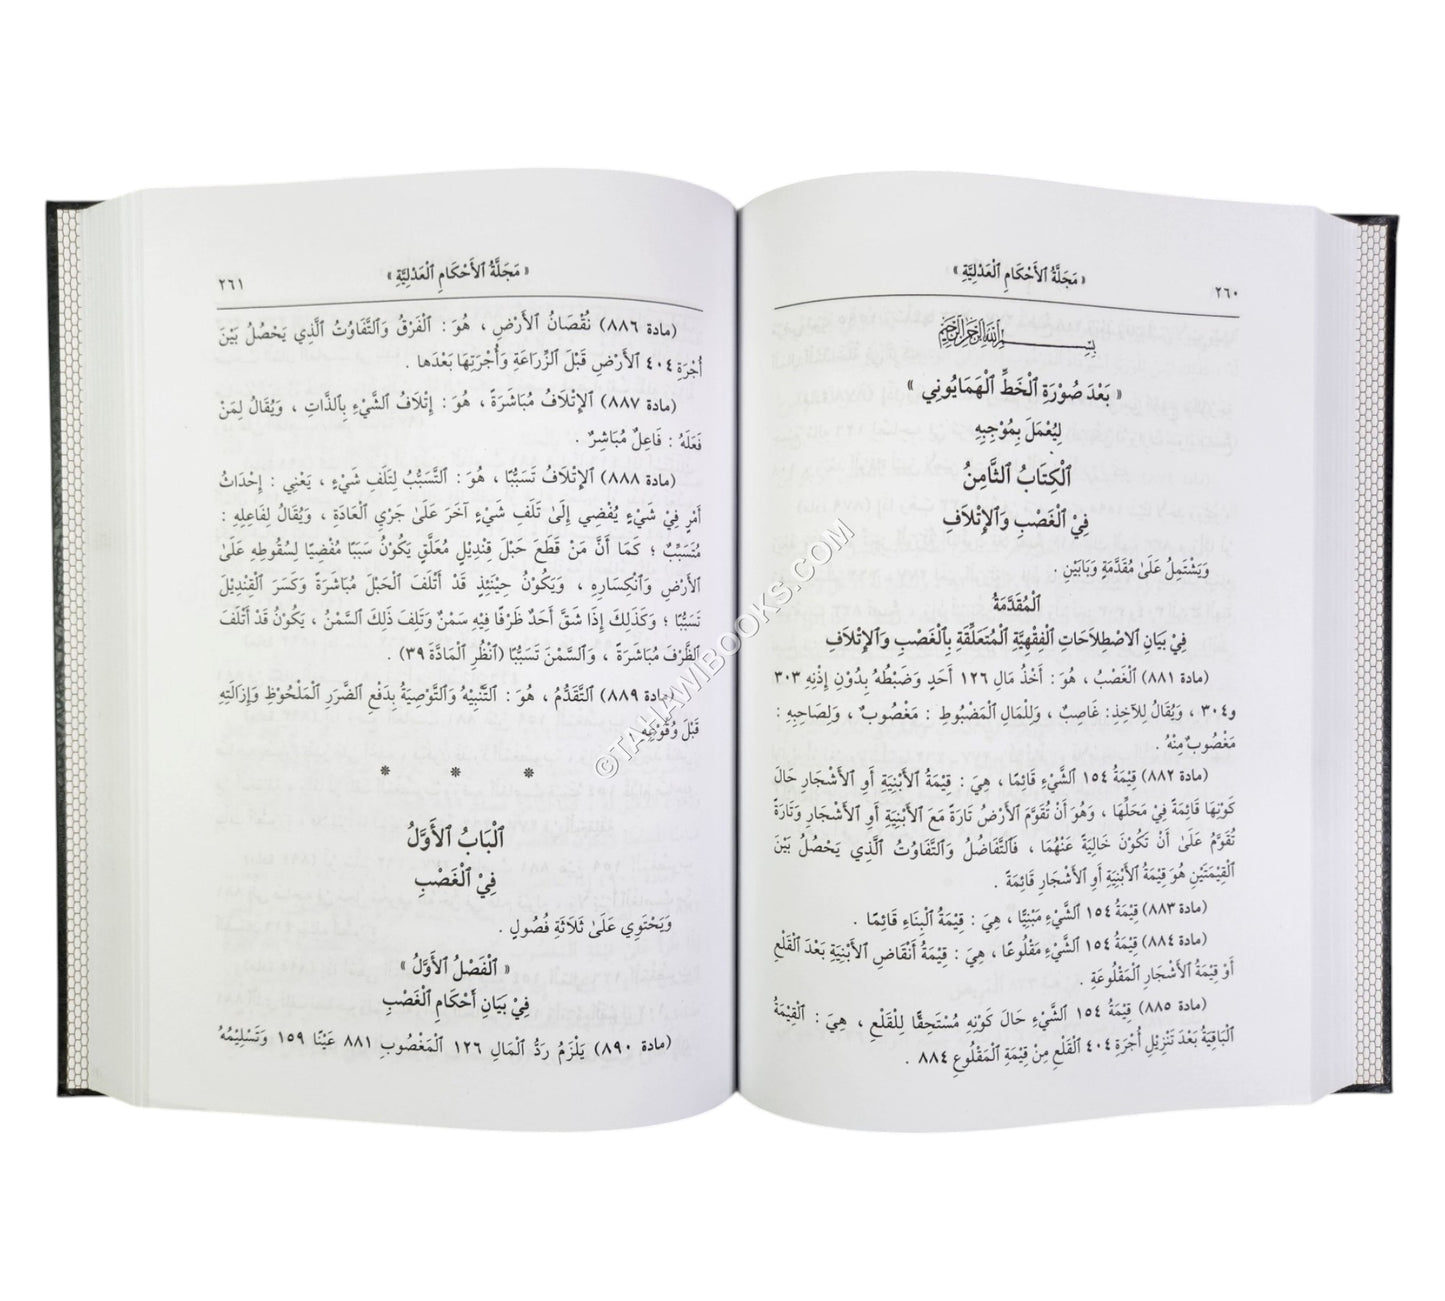 ٢٦٠
« مَجَلَّةُ ٱلأَحْكَامِ ٱلْعَدْلِيَّةِ »
بِسْمِ ٱللَّهِ ٱلرَّحْمَٰنِ ٱلرَّحِيمِ
« بَعْدَ صُورَةِ ٱلْخَطِّ ٱلْهَمَايُونِي »
لِيُعْمَلَ بِمُوْجِبِهِ
ٱلْكِتَابُ ٱلثَّامِنُ
فِيْ ٱلْغَصْبِ وَٱلإِتْلَافِ
وَيَشْتَمِلُ عَلَىٰ مُقَدِّمَةٍ وَبَابَيْنِ .
ٱلْمُقَدَّمَةُ
فِيْ بَيَانِ ٱلاصْطِلَاحَاتِ ٱلْفِقْهِيَّةِ ٱلْمُتَعَلِّقَةِ بِٱلْغَصْبِ وَٱلإِتْلَافِ
(مادة ٨٨١) ٱلْغَصْبُ ، هُوَ : أَخْذُ مَالِ ١٢٦ أَحَدٍ وَضَبْطُهُ بِدُونِ إِذْنِهِ ٣٠٣
و٣٠٤ ، وَيُقَالُ لِلآخِذِ: غَاصِبٌ ، وَلِلْمَالِ ٱلْمَضْبُوطِ : مَغْصُوبٌ ، وَلِصَاحِبِهِ :
مَغْصُوبٌ مِنْهُ .
(مادة ٨٨٢) قِيْمَةُ ١٥٤ ٱلشَّيْءِ قَائِمًا ، هِيَ : قِيْمَةُ ٱلأَبْنِيَةِ أَوِ ٱلأَشْجَارِ حَالَ
كَوْنِهَا قَائِمَةً فِيْ مَحَلِّهَا ، وَهُوَ أَنْ تُقَوَّمَ ٱلأَرْضُ تَارَةً مَعَ ٱلأَبْنِيَةِ أَوِ ٱلأَشْجَارِ وَتَارَةً
تُقَوَّمُ عَلَىٰ أَنْ تَكُوْنَ خَالِيَةً عَنْهُمَا ، فَٱلتَّفَاضُلُ وَٱلتَّفَاوُتُ ٱلَّذِي يَحْصُلُ بَيْنَ
ٱلْقِيْمَتَيْنِ هُوَ قِيْمَةُ ٱلأَبْنِيَةِ أَوِ ٱلأَشْجَارِ قَائِمَةً .
(مادة ٨٨٣) قِيْمَةُ ١٥٤ ٱلشَّيْءِ مَبْنِيًّا ، هِيَ : قِيْمَةُ ٱلْبِنَاءِ قَائِمًا .
(مادة ٨٨٤) قِيْمَةُ ١٥٤ ٱلشَّيْءِ مَقْلُوعًا ، هِيَ : قِيْمَةُ أَنْقَاضِ ٱلأَبْنِيَةِ بَعْدَ ٱلْقَلْعِ
أَوْ قِيْمَةُ ٱلأَشْجَارِ ٱلْمَقْلُوعَةِ .
(مادة ٨٨٥) قِيْمَةُ ١٥٤ ٱلشَّيْءِ حَالَ كَوْنِهِ مُسْتَحِقًّا لِلْقَلْعِ ، هِيَ : ٱلْقِيْمَةُ
ٱلْبَاقِيَةُ بَعْدَ تَنْزِيلِ أُجْرَةِ ٤٠٤ ٱلْقَلْعِ مِنْ قِيْمَةِ ٱلْمَقْلُوعِ ٨٨٤ .
« مَجَلَّةُ ٱلأَحْكَامِ ٱلْعَدْلِيَّةِ »
٢٦١
(مادة ٨٨٦) نُقْصَانُ ٱلأَرْضِ ، هُوَ : ٱلْفَرْقُ وَٱلتَّفَاوُتُ ٱلَّذِي يَحْصُلُ بَيْنَ
أُجْرَةِ ٤٠٤ ٱلأَرْضِ قَبْلَ ٱلزِّرَاعَةِ وَأُجْرَتِهَا بَعْدَها .
(مادة ٨٨٧) ٱلإِتْلَافُ مُبَاشَرَةً ، هُوَ : إِتْلَافُ ٱلشَّيْءِ بِٱلذَّاتِ ، وَيُقَالُ لِمَنْ
فَعَلَهُ : فَاعِلٌ مُبَاشِرٌ .
(مادة ٨٨٨) ٱلإِتْلَافُ تَسَبُّبًا ، هُوَ : ٱلتَّسَبُّبُ لِتَلَفِ شَيْءٍ ، يَعْنِي : إِحْدَاثُ
أَمْرٍ فِيْ شَيْءٍ يُفْضِي إِلَىٰ تَلَفِ شَيْءٍ آخَرَ عَلَىٰ جَرْيِ ٱلْعَادَةِ ، وَيُقَالُ لِفَاعِلِهِ :
مُتَسَبِّبٌ ؛ كَمَا أَنَّ مَنْ قَطَعَ حَبْلَ قِنْدِيْلٍ مُعَلَّقٍ يَكُوْنُ سَبَبًا مُفْضِيًا لِسُقُوطِهِ عَلَىٰ
ٱلأَرْضِ وَٱنْكِسَارِهِ ، وَيَكُوْنُ حِيْنَئِذٍ قَدْ أَتْلَفَ ٱلْحَبْلَ مُبَاشَرَةً وَكَسَرَ ٱلْقِنْدِيْلَ
تَسَبُّبًا ؛ وَكَذَلِكَ إِذَا شَقَّ أَحَدٌ ظَرْفًا فِيْهِ سَمْنٌ وَتَلِفَ ذَلِكَ ٱلسَّمْنُ ، يَكُوْنُ قَدْ أَتْلَفَ
ٱلظَّرْفَ مُبَاشَرَةً ، وَٱلسَّمْنَ تَسَبُّبًا (ٱنْظُرِ ٱلْمَادَّةَ ٣٩) .
(مادة ٨٨٩) ٱلتَّقَدُّمُ ، هُوَ : ٱلتَّنْبِيْهُ وَٱلتَّوْصِيَةُ بِدَفْعِ ٱلضَّرَرِ ٱلْمَلْحُوْظِ وَإِزَالَتِهِ
قَبْلَ وُقُوْعِهِ .
* * *
ٱلْبَابُ ٱلأَوَّلُ
فِيْ ٱلْغَصْبِ
وَيَحْتَوِي عَلَىٰ ثَلَاثَةِ فُصُولٍ .
« ٱلْفَصْلُ ٱلأَوَّلُ »
فِيْ بَيَانِ أَحْكَامِ ٱلْغَصْبِ
(مادة ٨٩٠) يَلْزَمُ رَدُّ ٱلْمَالِ ١٢٦ ٱلْمَغْصُوبِ ٨٨١ عَيْنًا ١٥٩ وَتَسْلِيْمُهُ
©TAHAWIBOOKS.COM